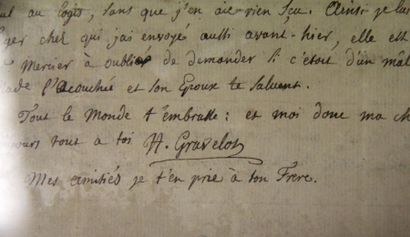 au logis, sans que j'en aie rien sçu. Ainsi je
chez qui j'ai envoyé aussi avant-hier, elle est
Mercier à oublié de demander si c'étoit d'un mâl
l'acouchée et son Epoux te saluent.
Tout le Monde t'embrasse: et moi donc ma ch
tout à toi H. Gravelot
Mes amitiés je t'en prie à ton Frere.